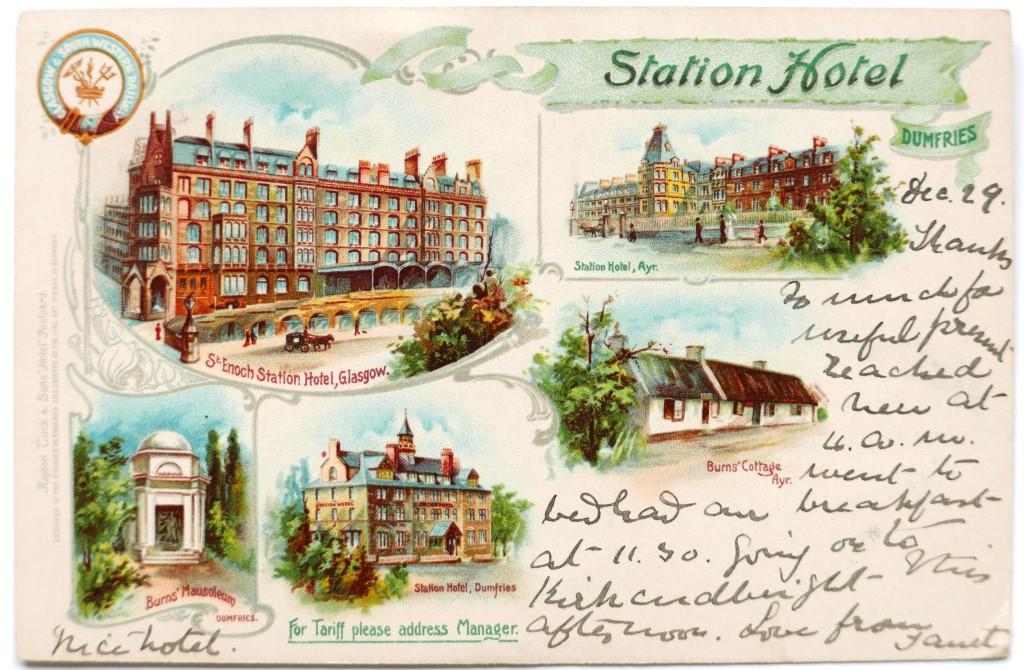 GLASGOW & SOUTH WESTERN RAILWAY
Station Hotel
DUMFRIES
St. Enoch Station Hotel, Glasgow.
Station Hotel, Ayr.
Burns' Cottage
Ayr.
Burns' Mausoleum
DUMFRIES.
STATION HOTEL
Station Hotel, Dumfries
For Tariff please address Manager.
Raphael Tuck & Sons' "Hotel" Postcard
Dec. 29.
Thanks
so much for
useful present
Reached
here at
4. a. m.
went to
bed had our breakfast
at 11.30. Going on to
Kirkcudbright this
afternoon. Love from
Janet
Nice hotel.